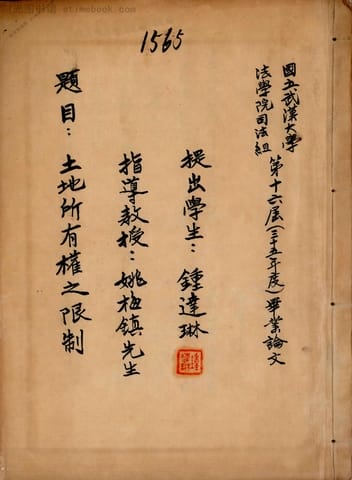 1565
國立武漢大學
法學院司法組
第十六屆(三十五年度)畢業論文
提出學生：鍾達琳
指導教授：姚梅鎮先生
題目：土地所有權之限制